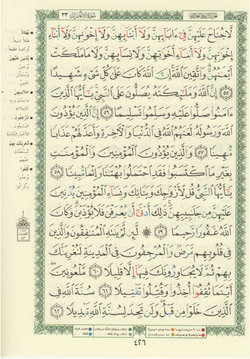 ٣٣
لَّا جُنَاحَ عَلَيْهِنَّ فِىٓ ءَابَآئِهِنَّ وَلَآ أَبْنَآئِهِنَّ وَلَآ إِخْوَٰنِهِنَّ وَلَآ أَبْنَآءِ
إِخْوَٰنِهِنَّ وَلَآ أَبْنَآءِ أَخَوَٰتِهِنَّ وَلَا نِسَآئِهِنَّ وَلَا مَا مَلَكَتْ
أَيْمَٰنُهُنَّ وَٱتَّقِينَ ٱللَّهَ إِنَّ ٱللَّهَ كَانَ عَلَىٰ كُلِّ شَىْءٍ شَهِيدًا
٥٥ إِنَّ ٱللَّهَ وَمَلَٰٓئِكَتَهُۥ يُصَلُّونَ عَلَى ٱلنَّبِىِّ يَٰٓأَيُّهَا ٱلَّذِينَ
ءَامَنُوا۟ صَلُّوا۟ عَلَيْهِ وَسَلِّمُوا۟ تَسْلِيمًا ٥٦ إِنَّ ٱلَّذِينَ يُؤْذُونَ
ٱللَّهَ وَرَسُولَهُۥ لَعَنَهُمُ ٱللَّهُ فِى ٱلدُّنْيَا وَٱلْءَاخِرَةِ وَأَعَدَّ لَهُمْ عَذَابًا
مُّهِينًا ٥٧ وَٱلَّذِينَ يُؤْذُونَ ٱلْمُؤْمِنِينَ وَٱلْمُؤْمِنَٰتِ
بِغَيْرِ مَا ٱكْتَسَبُوا۟ فَقَدِ ٱحْتَمَلُوا۟ بُهْتَٰنًا وَإِثْمًا مُّبِينًا ٥٨
يَٰٓأَيُّهَا ٱلنَّبِىُّ قُل لِّأَزْوَٰجِكَ وَبَنَاتِكَ وَنِسَآءِ ٱلْمُؤْمِنِينَ يُدْنِينَ
عَلَيْهِنَّ مِن جَلَٰبِيبِهِنَّ ذَٰلِكَ أَدْنَىٰٓ أَن يُعْرَفْنَ فَلَا يُؤْذَيْنَ وَكَانَ
ٱللَّهُ غَفُورًا رَّحِيمًا ٥٩ لَّئِن لَّمْ يَنتَهِ ٱلْمُنَٰفِقُونَ وَٱلَّذِينَ
فِى قُلُوبِهِم مَّرَضٌ وَٱلْمُرْجِفُونَ فِى ٱلْمَدِينَةِ لَنُغْرِيَنَّكَ
بِهِمْ ثُمَّ لَا يُجَاوِرُونَكَ فِيهَآ إِلَّا قَلِيلًا ٦٠ مَّلْعُونِينَ
أَيْنَمَا ثُقِفُوٓا۟ أُخِذُوا۟ وَقُتِّلُوا۟ تَقْتِيلًا ٦١ سُنَّةَ ٱللَّهِ فِى
ٱلَّذِينَ خَلَوْا۟ مِن قَبْلُ وَلَن تَجِدَ لِسُنَّةِ ٱللَّهِ تَبْدِيلًا ٦٢
٤٢٦